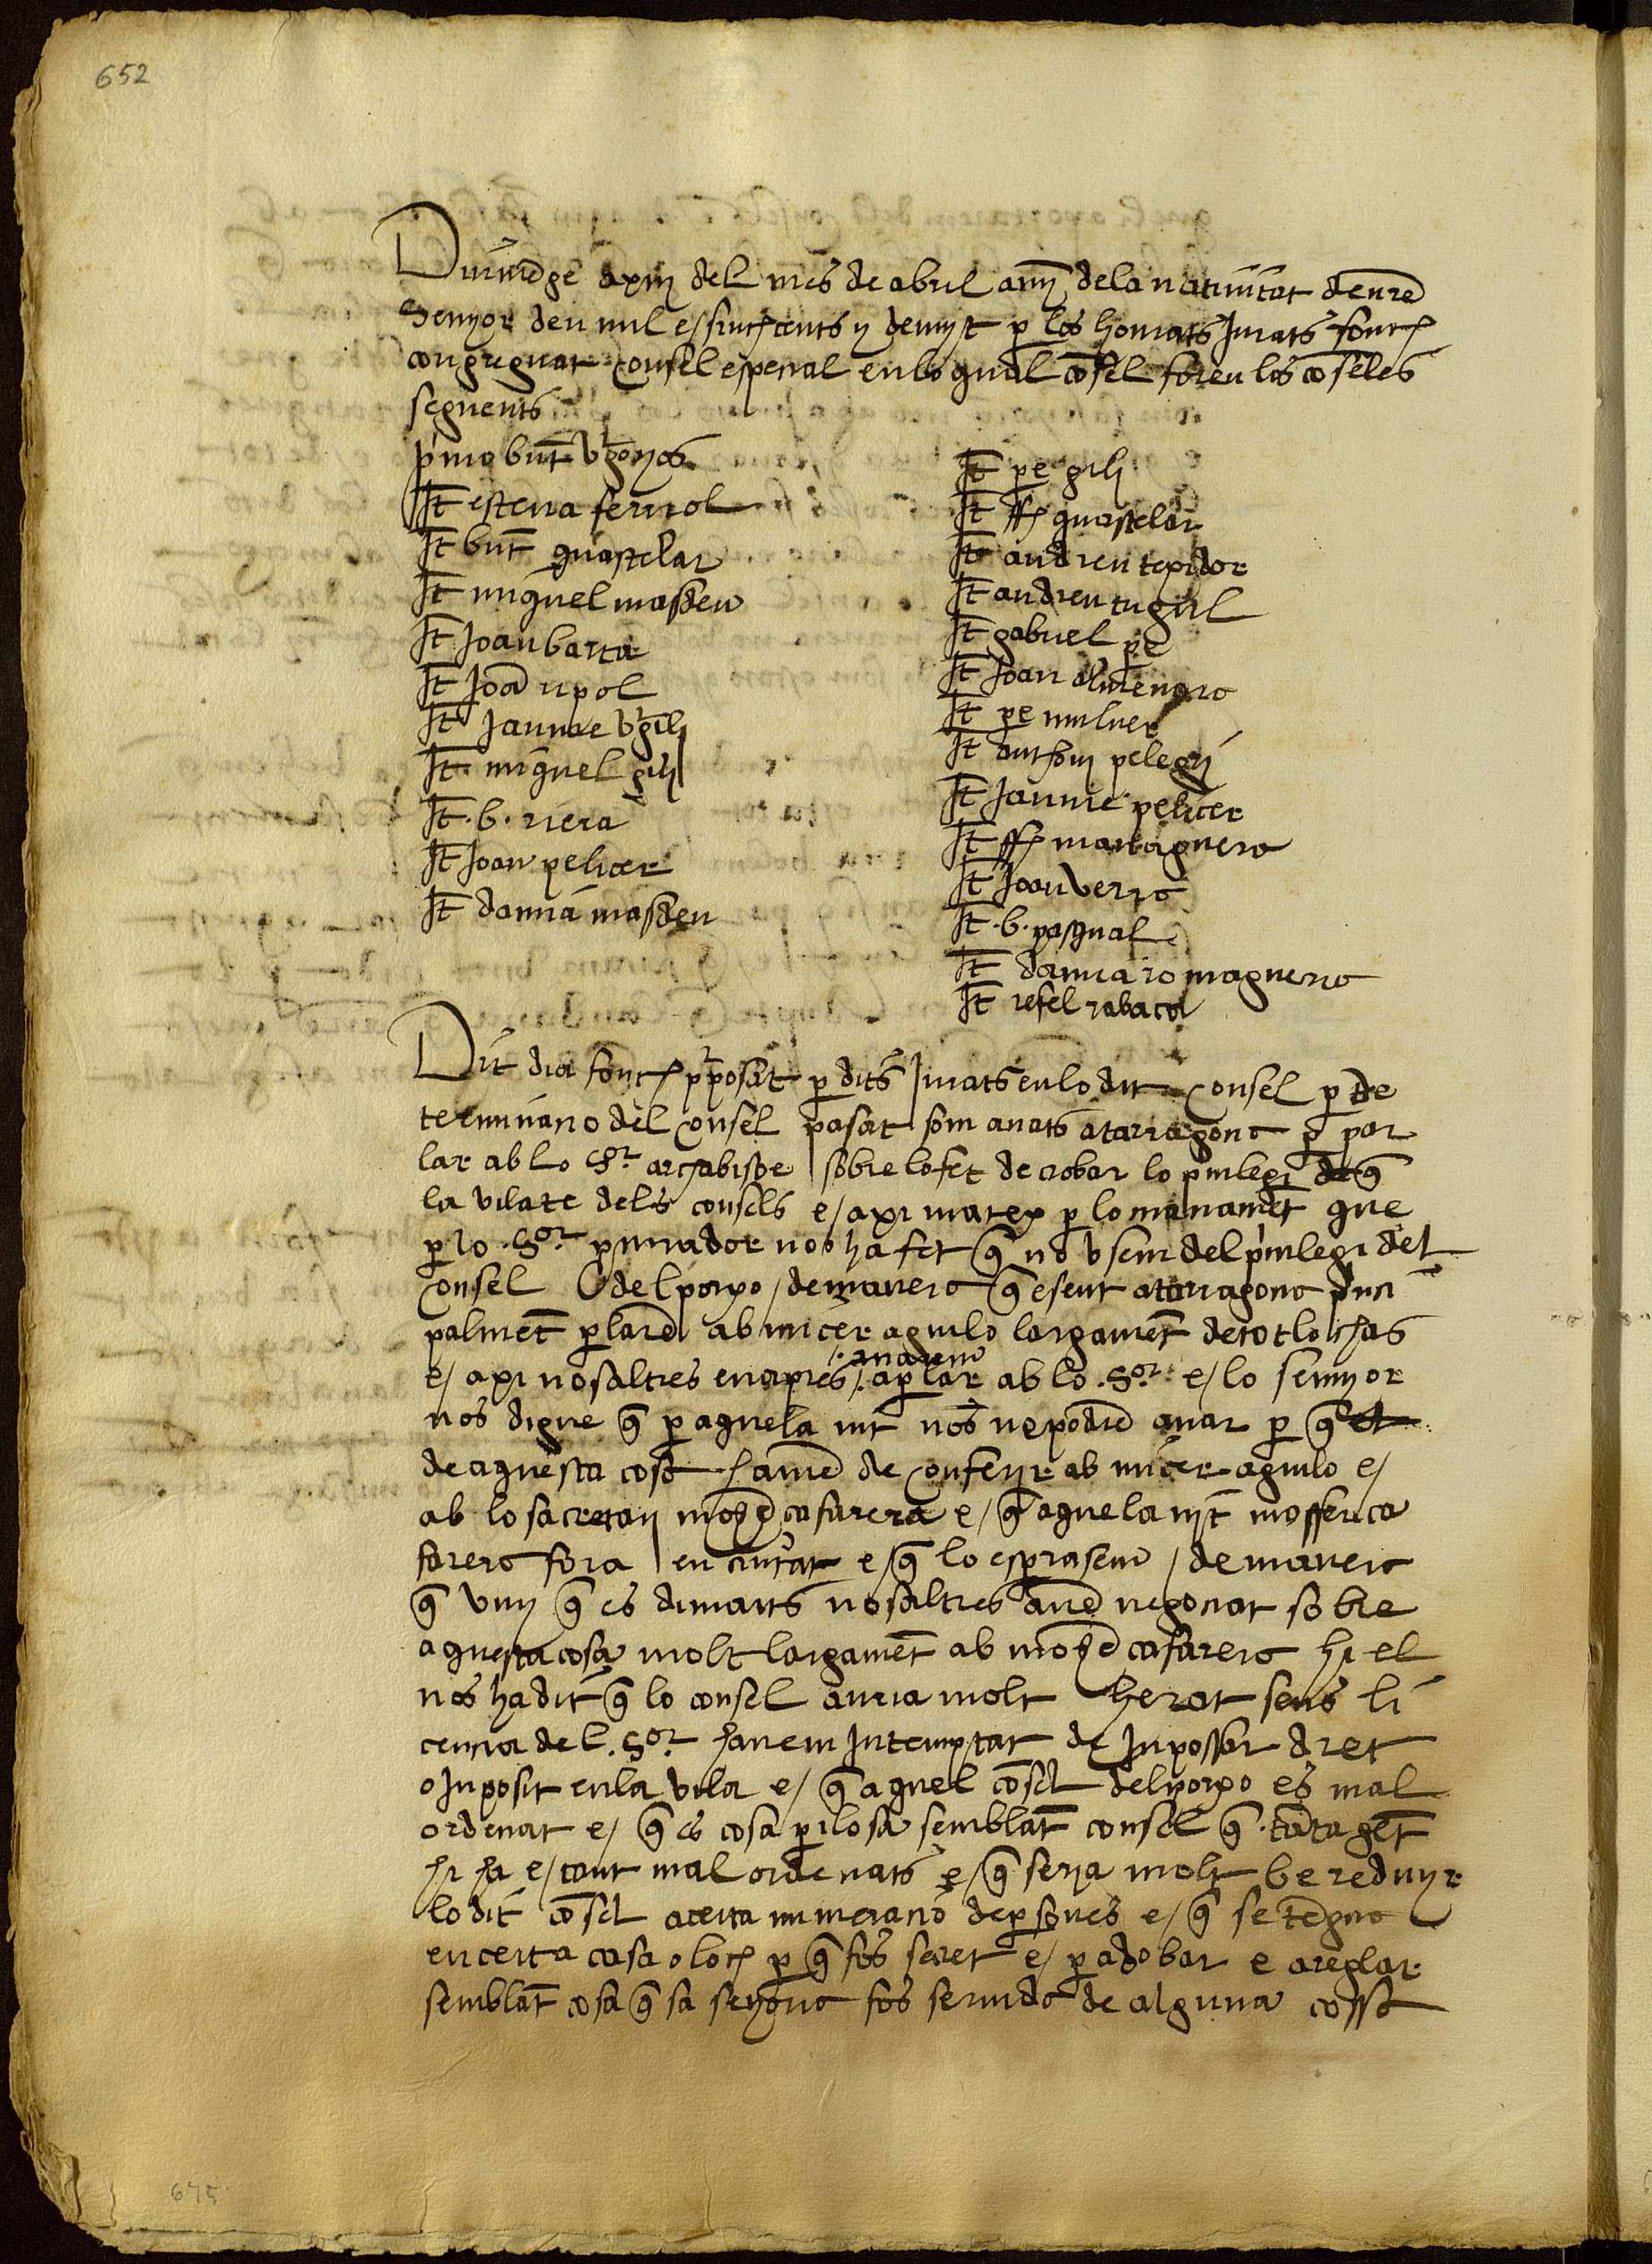 652
Diumēge a xiij del mes de abril anÿ dela natiuitat de nrē
Senyor deu mil e sinch cents y demyt p los honrats Jurats fonch
congreguat Consel especial en lo qual cōsel foren los cōseles
seguents
pmo bnt v̄gonyos
It esteua feriol
It bnt guastelar
It miguel masdeu
It Joan barta
It Joā ripol
It Jaume v̄gili
It miguel gili
It .b. riera
It Joan pelicer
It damia masdeu
It pe gili
It ff guastelar
It andreu texidor
It andreu tugil
It gabriel pe
It Joan almenara
It pe muluer
It anthoni pelegri
It Jaume pelicer
It ff maitaguera
It Joan verra
It .b. pasqual
It damia romaguera
It refel rabaca
Dit dia fonch pposat p dits Jurats en lo dit Consel p de
terminacio del Consel pasat som anats a tarragona p par
lar ab lo Sr. archabisbe sobre lo fet de cobar lo priuilegi de q̄
la vila te dels consels e axi matex p lo manamēt que
p lo .Sor. pcurador nos ha fet q̄ no vsem del priuilegi del
Consel del porxo / de manera q̄ esent a tarragona prin
palmēt parlarē ab micer aguilo largamēt de tot lo chas
e axi nosaltres en apres anarem a parlar ab lo .Sor. e lo senyor
nos digue q̄ p aquela nit nos ne podiē anar p q̄
de aquesta cosa hauiē de Conferir ab micer aguilo e
ab lo sacretari mosē cafarera e q̄ aquela nit mossen ca
farera fora en ciutat e q̄ lo esperasem / de manera
q̄ vuy q̄ es dimarts nosaltres auē negociat sobre
aquesta cosa molt largamēt ab mosē cafarera hi el
nos ha dit q̄ lo consel auria molt herat sens li
cencia del .Sor. hauem Jntemptat de Jnpossar dret
o Jnposit en la vila e q̄ aquel cōsel del porxo es mal
ordenat e q̄ es cosa pilosa semblāt consel q̄ tāta gēt
hi ha e tant mal ordenats e q̄ seria molt be reduyr
lo dit cōsel a certa numeracio de psones e q̄ se tēgua
en certa casa o loch p q̄ fos secret e p adobar e areglar
semblāt cosa q̄ sa senyoria fos seruida de alguna cossa
675